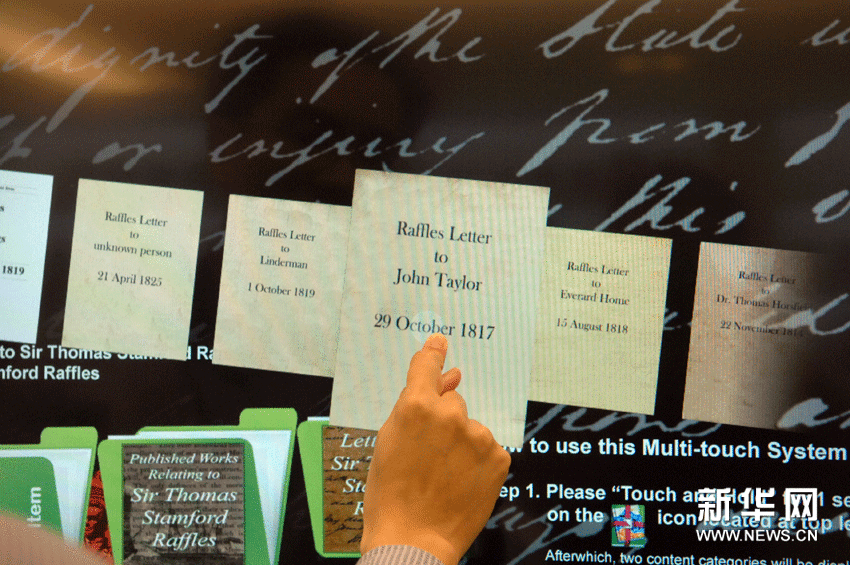 dignity of the State
or injury from
this
1819
Raffles Letter
to
unknown person
21 April 1825
Raffles Letter
to
Linderman
1 October 1819
Raffles Letter
to
John Taylor
29 October 1817
Raffles Letter
to
Everard Home
15 August 1818
Raffles Letter
to
Dr. Thomas
22 November
to Sir Thomas Stamford
mford Raffles
Published Works
Relating to
Sir Thomas
Stamford
Raffles
Sir
to use this Multi-touch System
ep 1. Please “Touch and
on the icon located at top le
Afterwhich, two content categories will be displ
新华网
WWW.NEWS.CN